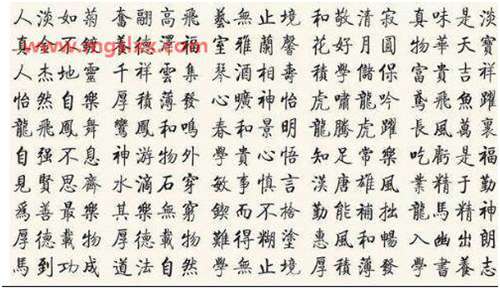 人淡如菊 奮翮高飛 藝無止境 和敬清寂 真味是淡
真金不 德澤福 雅蘭馨 花好月圓 物華天寶
人杰地靈 千祥雲集 琴酒相壽 積學儲保 富貴吉祥
怡然自樂 厚積薄發 心曠神怡 虎嘯龍吟 鳶飛魚躍
龍飛鳳舞 鸞鳳和鳴 春和景明 龍騰虎躍 長風萬裏
自强不息 神游物外 學貴心悟 知足常樂 吃虧是福
見賢思齊 水滴石穿 敏事慎言 漢唐雄風 業精于勤
爲善最樂 其樂無窮 鍥而不捨 勤能補拙 龍馬精神
厚德載物 厚德載物 難得糊塗 惠風和暢 入幽出朗
馬到功成 道法自然 學無止境 厚積薄發 學書養志